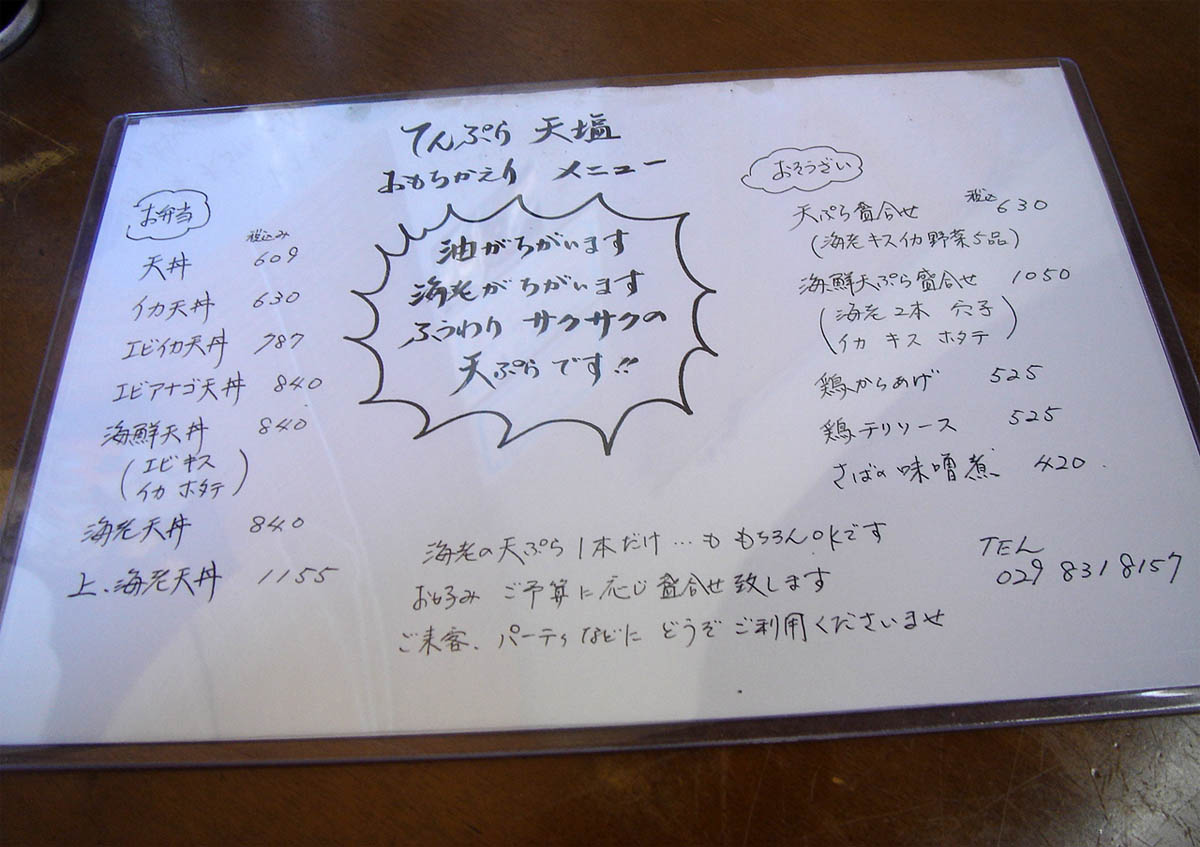 てんぷら 天塩
おもちかえり メニュー
お弁当
税込み
天丼 609
イカ天丼 630
エビイカ天丼 787
エビアナゴ天丼 840
海鮮天丼 840
(エビ キス
イカ ホタテ)
海老天丼 840
上.海老天丼 1155
油がちがいます
海老がちがいます
ふうわり サクサクの
天ぷらです!!
おそうざい
天ぷら盛合せ 税込 630
(海老 キス イカ 野菜5品)
海鮮天ぷら盛合せ 1050
(海老2本 穴子
イカ キス ホタテ)
鶏からあげ 525
鶏テリソース 525
さばの味噌煮 420
海老の天ぷら 1本だけ…も もちろんOKです
お好み ご予算に応じ 盛合せ致します
ご来客、パーティなどに どうぞ ご利用くださいませ
TEL
029 831 8157